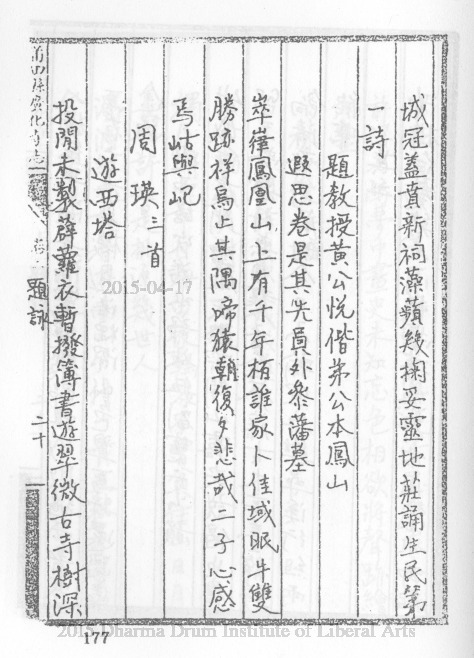 城冠蓋賁新祠藻蘋幾掬妥靈地莊誦生民第
一詩
題教授黃公悅偕弟公本鳳山
遐思卷是其先員外參藩墓
崒嵂鳳凰山上有千年栢誰家卜佳域眠牛雙
勝跡祥烏止其隅啼猿雜復夕悲哉二子心感
焉岵與屺
周瑛三首
遊西塔
投閒未製薜蘿衣暫撥簿書遊翠微古寺樹深
莆田縣廣化寺志
題詠
二十
2015-04-17
177
2015 Dharma Drum Institute of Liberal Arts